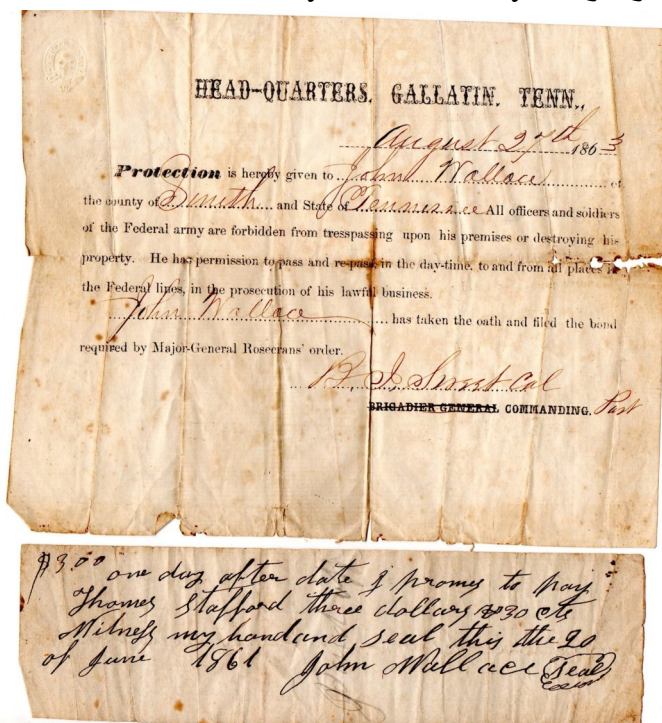 HEAD-QUARTERS, GALLATIN, TENN.,
August 27th 1863
Protection is hereby given to John Wallace of
the county of Smith and State of Tennessee All officers and soldiers
of the Federal army are forbidden from tresspassing upon his premises or destroying his
property. He has permission to pass and re-pass, in the day-time, to and from all places in
the Federal lines, in the prosecution of his lawful business.
John Wallace has taken the oath and filed the bond
required by Major-General Rosecrans' order.
B. J. Sweet Col
BRIGADIER GENERAL COMMANDING. Post
$3.00
one day after date I promes to pay
Thomes Stafford three dollars & 30 cts
Witness my hand and seal this the 29
of June 1861 John Wallace Seal